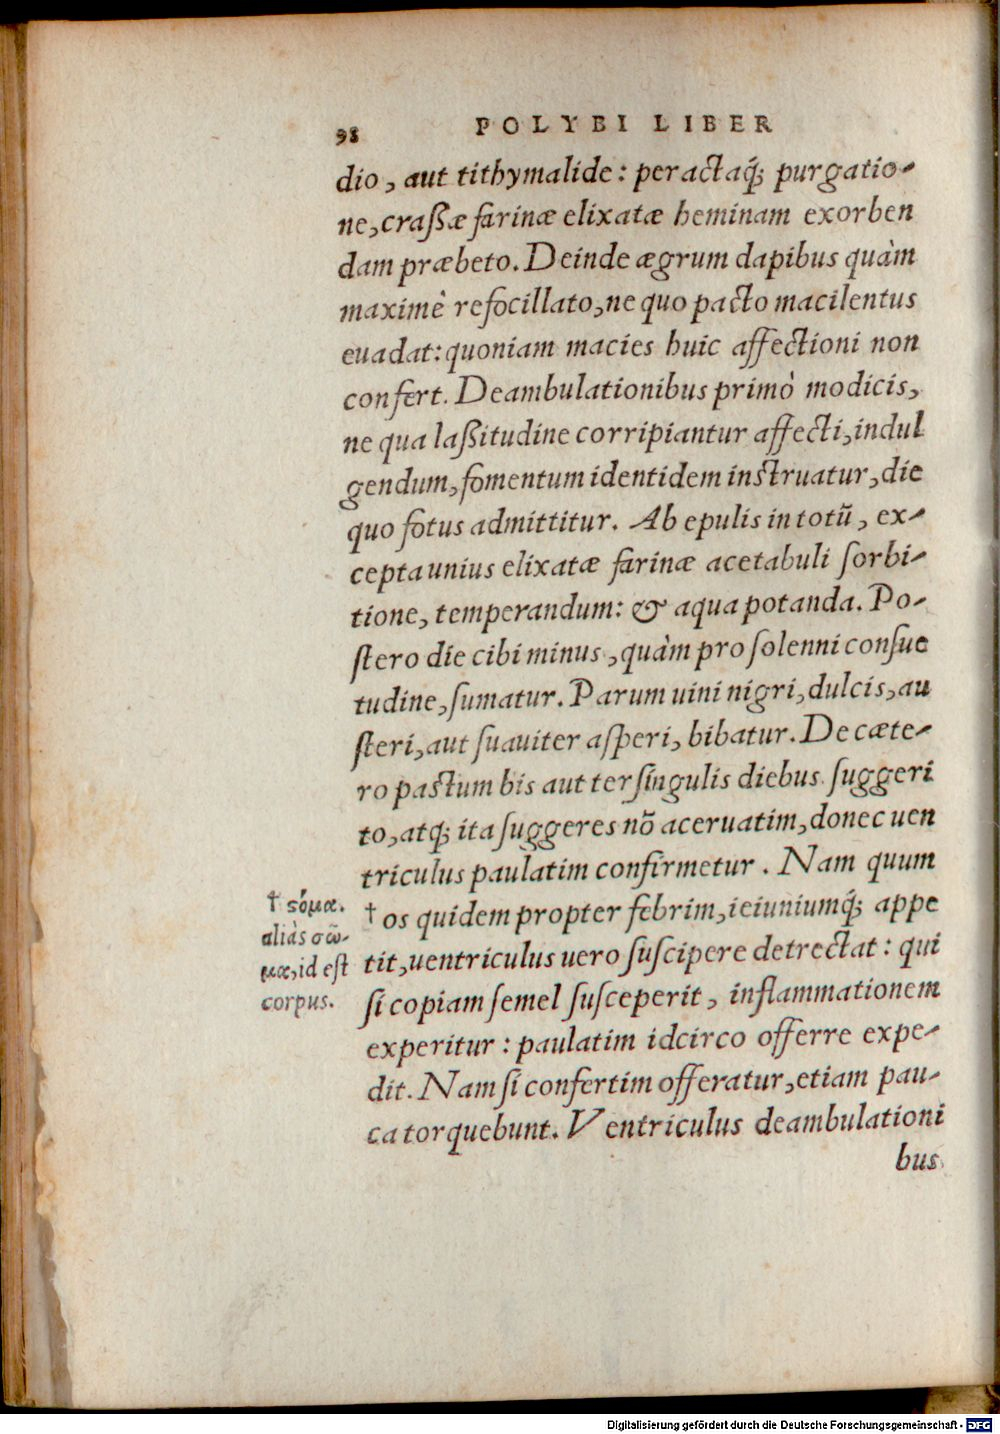 98 POLYBI LIBER
dio, aut tithymalide: peractaq́; purgatio-
ne, craßæ farinæ elixatæ heminam exorben
dam præbeto. Deinde ægrum dapibus quàm
maximè refocillato, ne quo pacto macilentus
euadat: quoniam macies huic affectioni non
confert. Deambulationibus primò modicis,
ne qua laßitudine corripiantur affecti, indul
gendum, fomentum identidem instruatur, die
quo fotus admittitur. Ab epulis in totũ, ex-
cepta unius elixatæ farinæ acetabuli sorbi-
tione, temperandum: & aqua potanda. Po-
stero die cibi minus, quàm pro solenni consue
tudine, sumatur. Parum uini nigri, dulcis, au
steri, aut suauiter asperi, bibatur. De cæte-
ro pastum bis aut ter singulis diebus suggeri
to, atq; ita suggeres nõ aceruatim, donec uen
triculus paulatim confirmetur. Nam quum
† os quidem propter febrim, ieiuniumq́; appe
tit, uentriculus uero suscipere detrectat: qui
si copiam semel susceperit, inflammationem
experitur: paulatim idcirco offerre expe-
dit. Nam si confertim offeratur, etiam pau-
ca torquebunt. Ventriculus deambulationi
bus
† ϛόμα.
aliàs σῶ-
μα, id est
corpus.
Digitalisierung gefördert durch die Deutsche Forschungsgemeinschaft - DFG